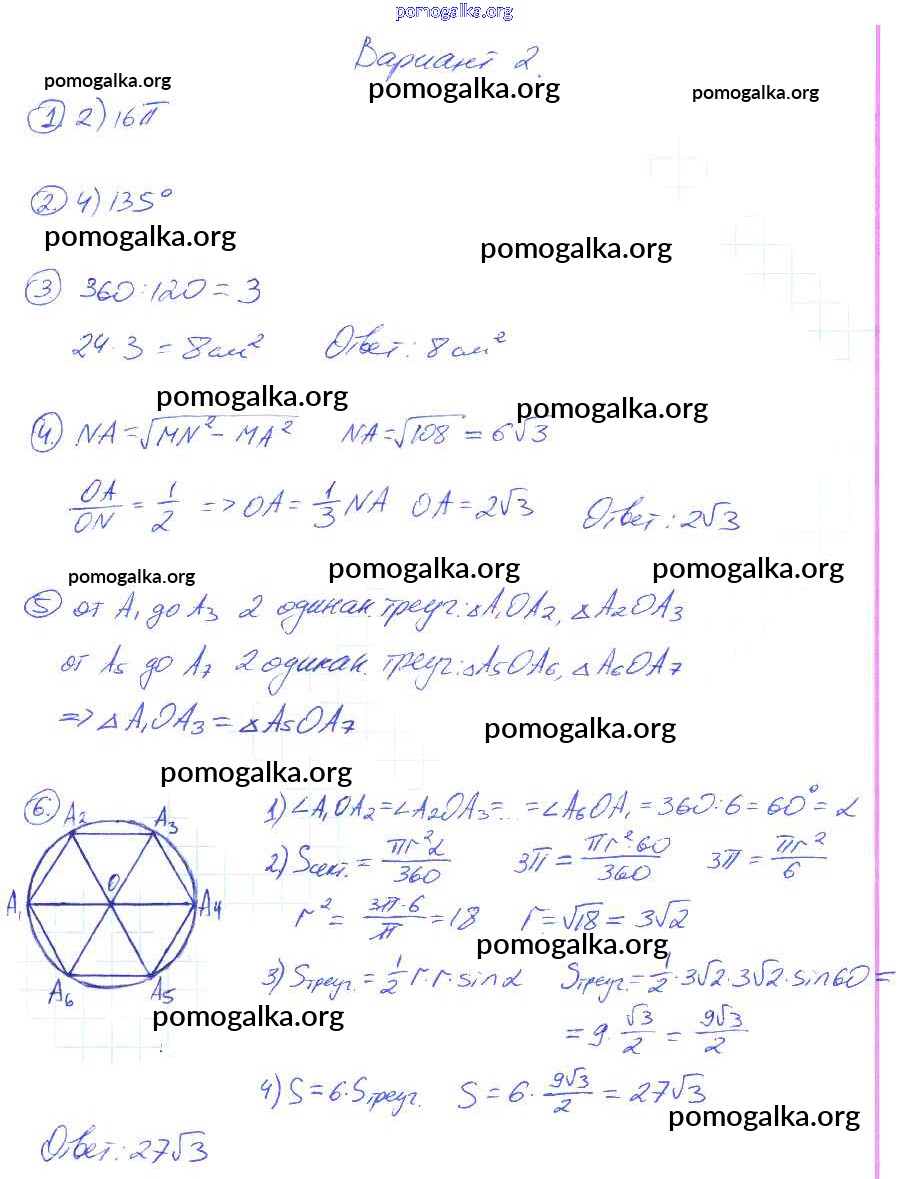 pomogalka.org
Вариант 2.
pomogalka.org
pomogalka.org
pomogalka.org
1. 2) 16π
2. 4) 135°
pomogalka.org
pomogalka.org
3. 360:120 = 3
24·3 = 8см² Ответ: 8см²
pomogalka.org
pomogalka.org
4. NA = √MN² - MA² NA = √108 = 6√3
OA/ON = 1/2 => OA = 1/3 NA OA = 2√3 Ответ: 2√3
pomogalka.org
pomogalka.org
pomogalka.org
5. от A₁ до A₃ 2 одинак. треуг: △A₁OA₂, △A₂OA₃
от A₅ до A₇ 2 одинак. треуг: △A₅OA₆, △A₆OA₇
=> △A₁OA₃ = △A₅OA₇
pomogalka.org
pomogalka.org
6.
A₂ A₃
O
A₁ A₄
A₆ A₅
1) ∠A₁OA₂ = ∠A₂OA₃ = ... = ∠A₆OA₁ = 360:6 = 60° = α
2) Sсект. = πr²α/360 3π = πr²·60/360 3π = πr²/6
r² = 3π·6/π = 18 r = √18 = 3√2
pomogalka.org
3) Sтреуг. = 1/2 r·r·sinα Sтреуг. = 1/2·3√2·3√2·sin60 =
pomogalka.org
= 9·√3/2 = 9√3/2
4) S = 6·Sтреуг. S = 6·9√3/2 = 27√3
pomogalka.org
Ответ: 27√3